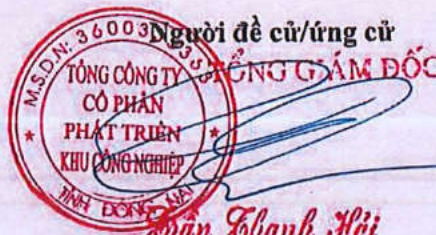 Người đề cử/ứng cử
TỔNG GIÁM ĐỐC
M.S.D.N: 36003
TỔNG CÔNG TY
CỔ PHẦN
PHÁT TRIỂN
KHU CÔNG NGHIỆP
TỈNH ĐỒNG NAI
Trần Thanh Hải